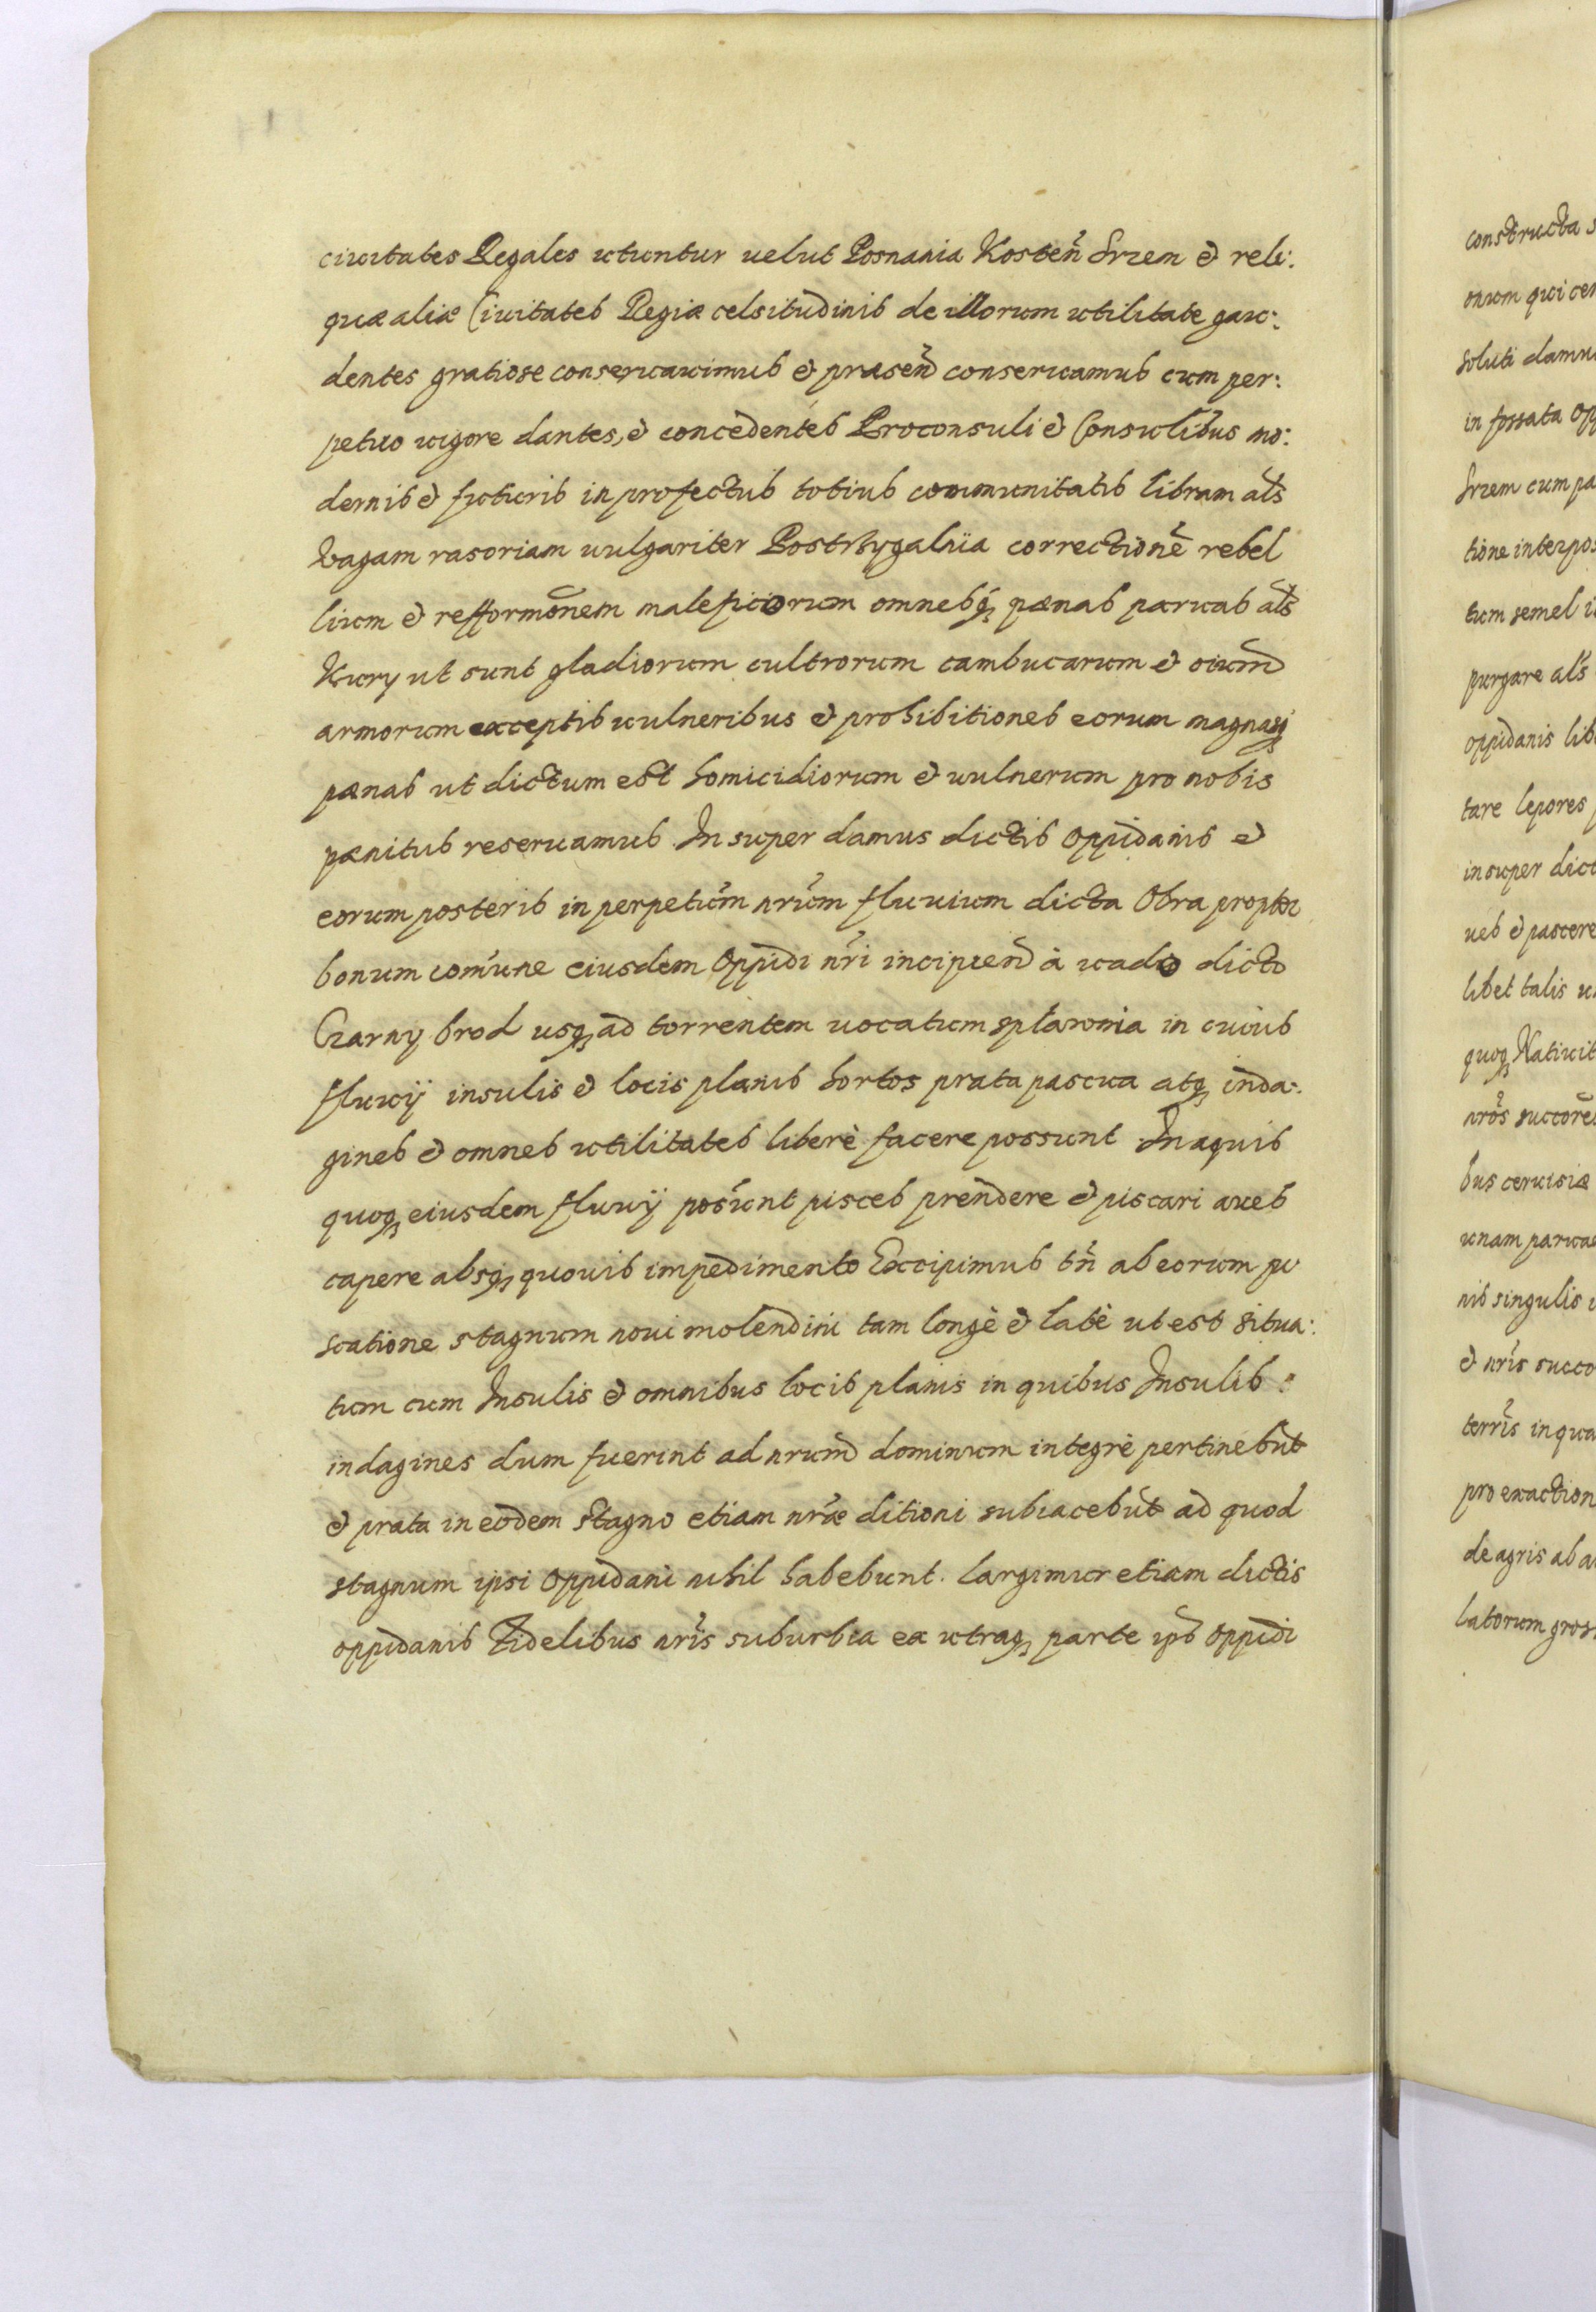 ciuitates Regales utuntur uelut Posnania Kosteñ Srzem et reli:
quæ aliæ Ciuitates Regiæ celsitudinis de illorum utilitate gau:
dentes gratiose conseruauimus et præseñd conseruamus cum per:
petuo uigore dantes, et concedentes Proconsuli et Consulibus mo:
dernis et futuris in profectus totius communitatis libram als
Wagam rasoriam uulgariter Postrzygalnia correctionẽ rebel
lium et refformõnem maleficiorum omnesq́ pænas paruas als
Kury ut sunt gladiorum cultrorum cambucarum et oium̃
armorum exceptis uulneribus et prohibitiones eorum magnasq́
pænas ut dictum est homicidiorum et uulnerum pro nobis
pænitus reseruamus. Insuper damus dictis oppidanis et
eorum posteris in perpetuũm nrũm fluuium dicta Obra propter
bonum comũne eiusdem Oppidi nr̃i incipieñd à uado dicto
Czarny brod usq́ ad torrentem uocatum spławnia in cuius
fluuij insulis et locis planis hortos prata pascua atq́ inda:
gines et omnes utilitates liberè facere possunt. In aquis
quoq́ eiusdem fluuij posũnt pisces prendere et piscari aues
capere absq́ quouis impedimento Excipimus tñ ab eorum pi
scatione stagnum noui molendini tam longè et latè ut est situa:
tum cum Insulis et omnibus locis planis in quibus Insulis:
indagines dum fuerint ad nrum̃ dominium integrè pertinebũt
et prata in eodem Stagno etiam nr̃æ ditioni subiacebũt ad quod
stagnum ipsi Oppidani nihil habebunt. Largimur etiam dictis
oppidanis Fidelibus nr̃is suburbia ex utraq́ parte ips̃ Oppidi
constructa s
onum qui cen
soluti damn
in fossata opp
Srzem cum pa
tione interpos
tum semel i
purgare als
oppidanis lib
tare lepores p
insuper dict
ues et pascere
libet talis u
quoq́ Natiuit
nrõs succorẽs
bus ceruisiæ
unam paruæ
nis singulis
et nr̃is succo
terr̃is in qua
pro exaction
de agris ab a
latorum gros